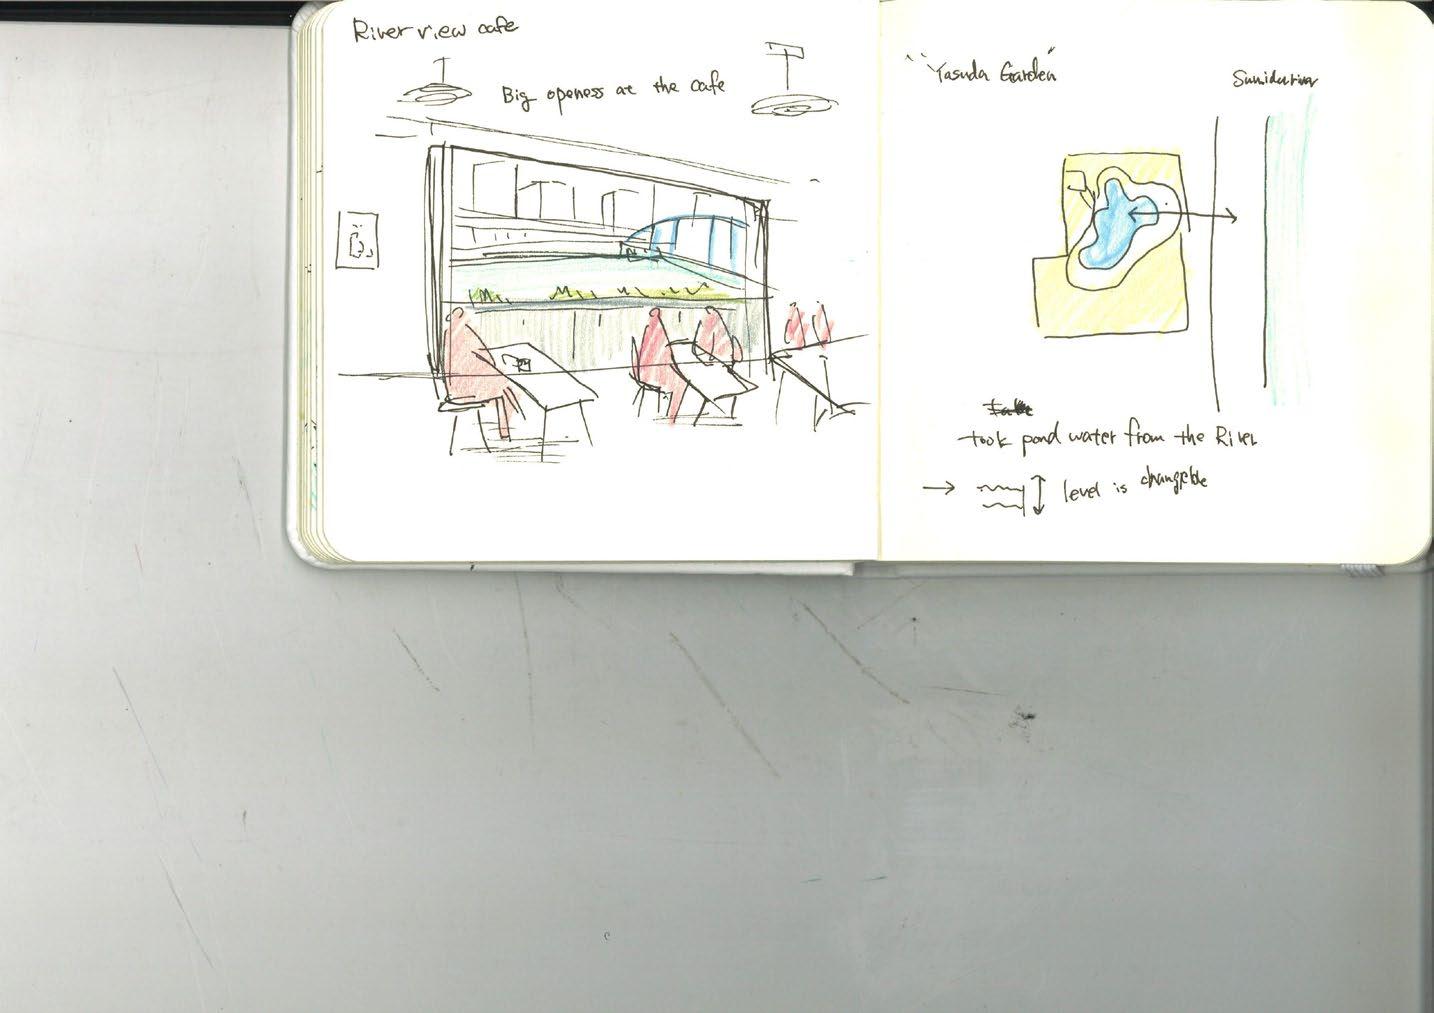 River view cafe
Big openess at the cafe
"Yasuda Garden"
Sumidariver
took pond water from the River
→ level is changeble